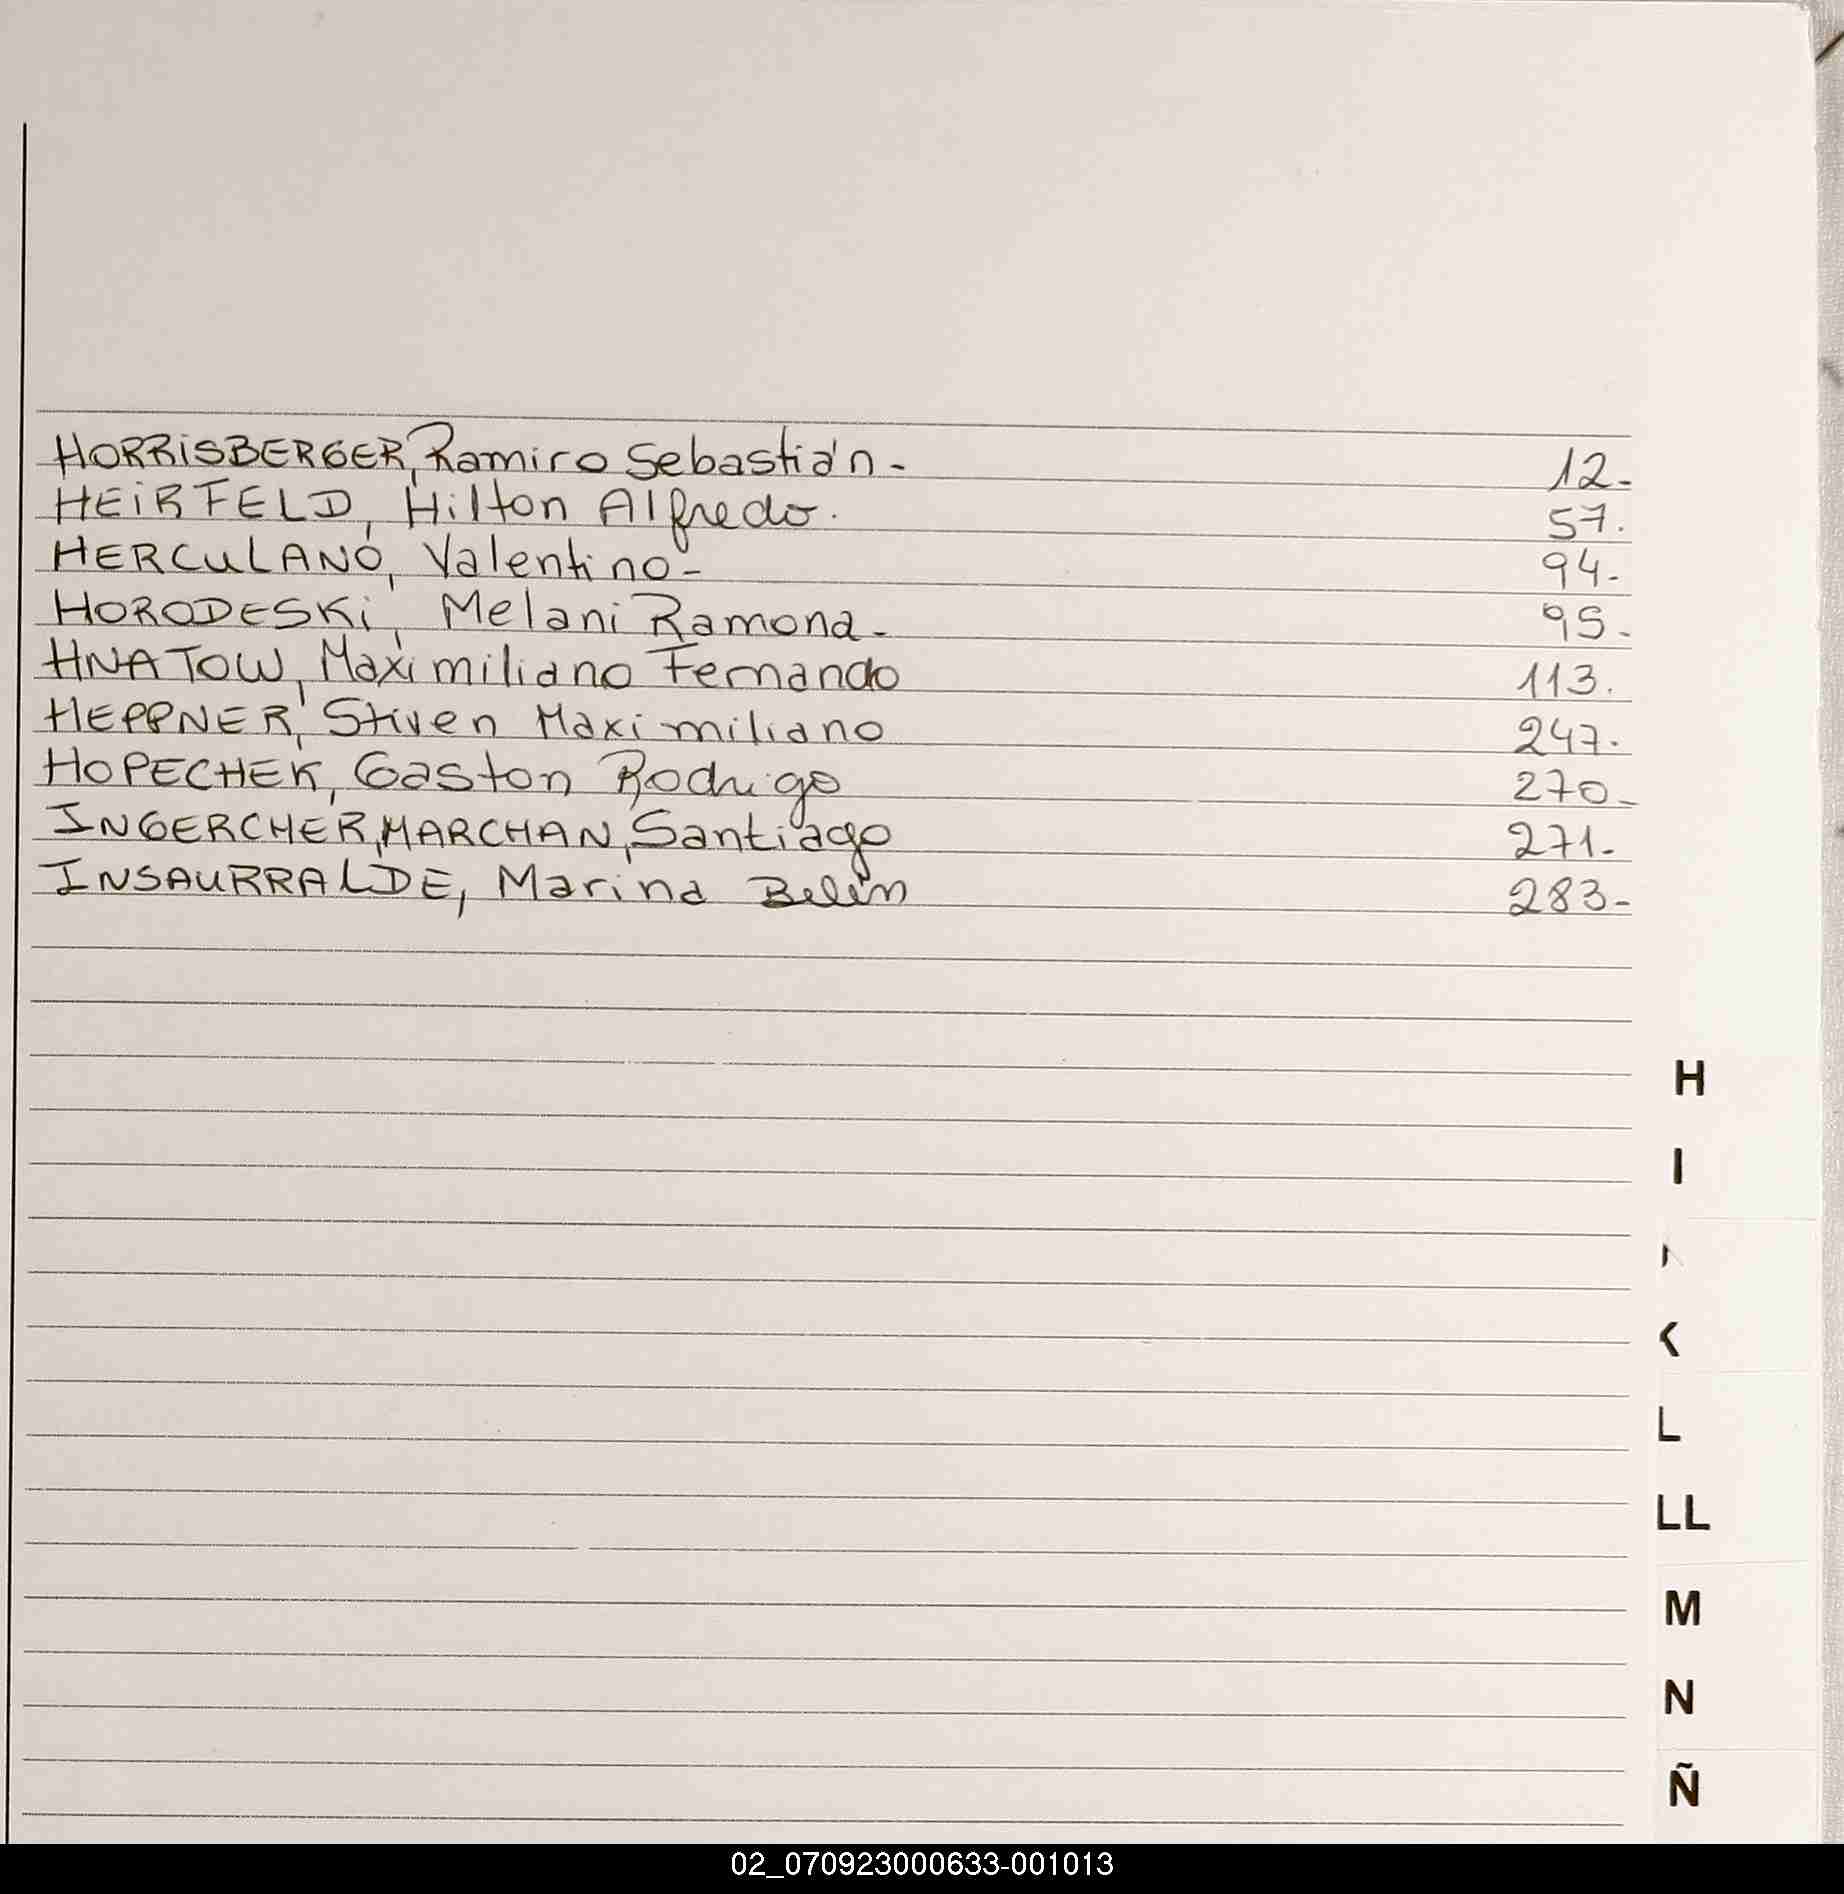 HORRISBERGER, Ramiro Sebastián- 12-
HEIRFELD, Hilton Alfredo. 57.
HERCULANO, Valentino- 94-
HORODESKI, Melani Ramona- 95-
HNATOW, Maximiliano Fernando 113.
HEPPNER, Stiven Maximiliano 247.
HOPECHEK, Gaston Rodrigo 270-
INGERCHER, MARCHAN, Santiago 271-
INSAURRALDE, Marina Belén 283-
H
I
K
L
LL
M
N
Ñ
02_070923000633-001013